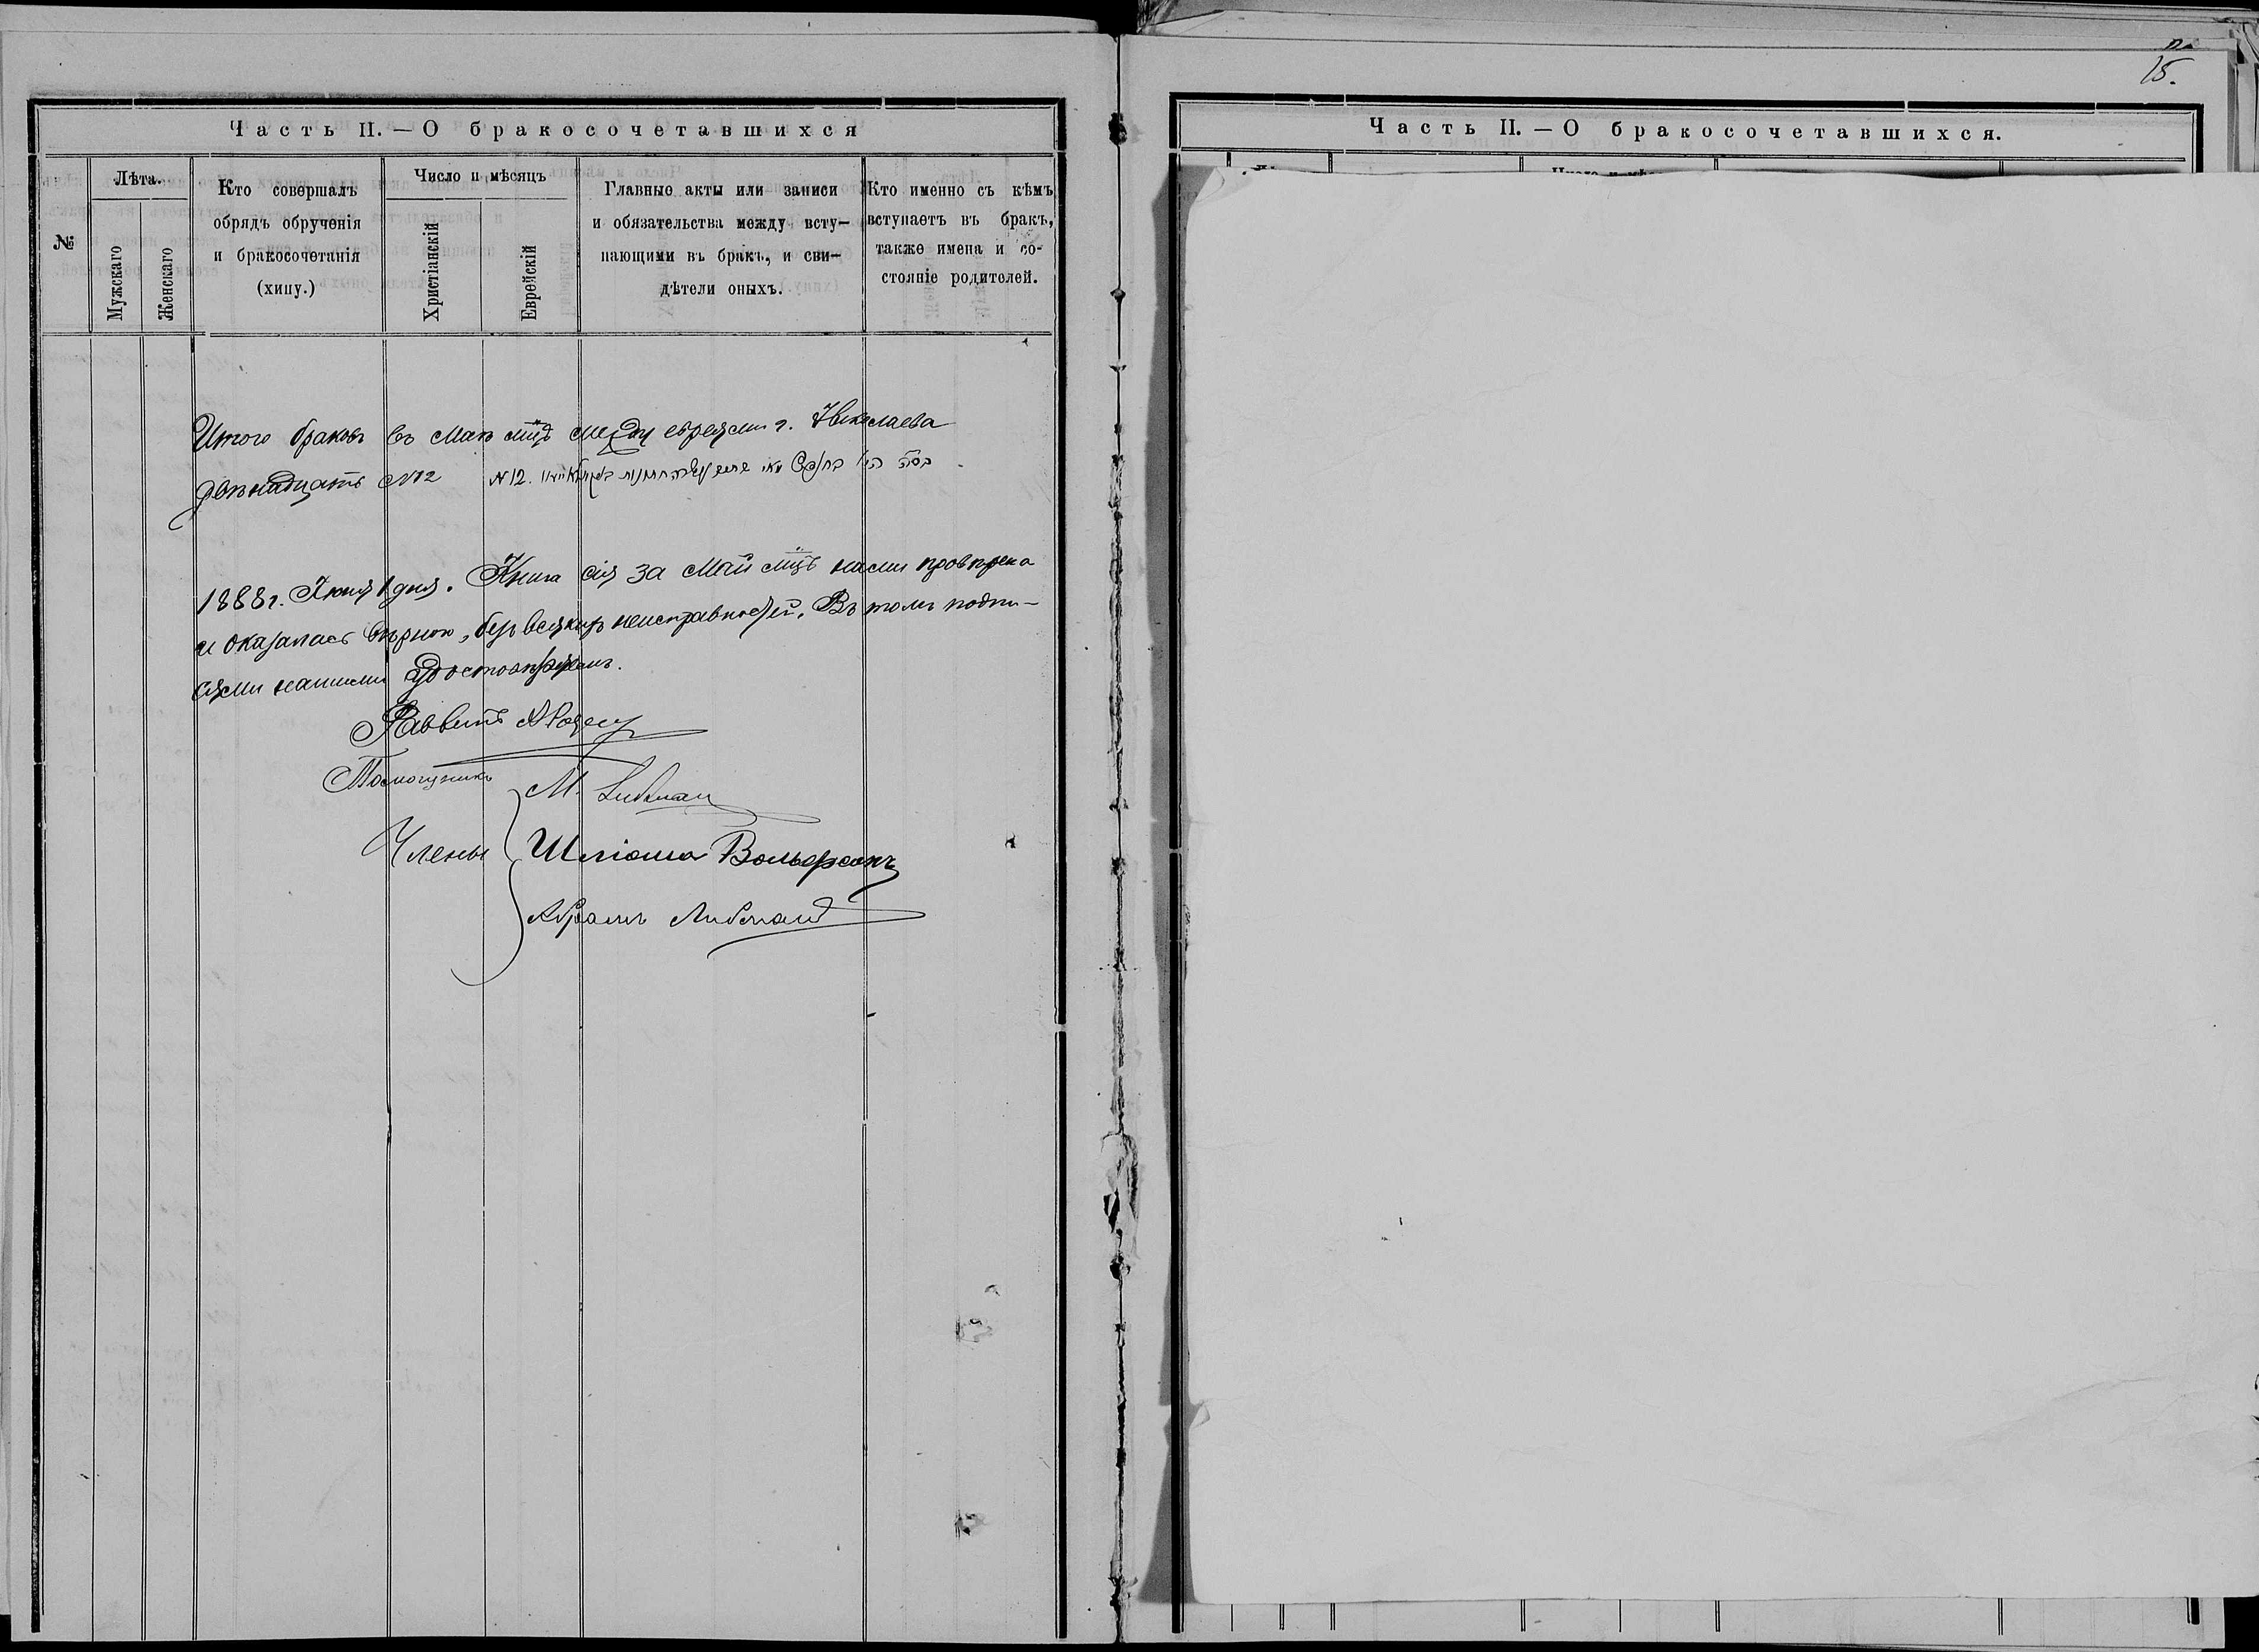 Часть II. — О бракосочетавшихся
№
Лѣта.
Мужскаго
Женскаго
Кто совершалъ
обрядъ обрученія
и бракосочетанія
(хипу.)
Число и мѣсяцъ
Христіанскій
Еврейскій
Главные акты или записи
и обязательства между всту-
пающими въ бракъ, и сви-
дѣтели оныхъ.
Кто именно съ кѣмъ
вступаетъ въ бракъ,
также имена и со-
стояніе родителей.
Итого браковъ въ Маѣ мцѣ между евреями г. Николаева
двѣнадцать №12 №12.
1888 г. Іюня 1 дня. Книга сія за Май мцъ нами провѣрена
и оказалась вѣрною, безъ всякихъ неисправностей. Въ томъ подпи-
сями нашими удостовѣряемъ.
Раввинъ
Помощникъ M.
Члены Шліома Вольфсонъ
Абрамъ Либманъ
15.
Часть II. — О бракосочетавшихся.